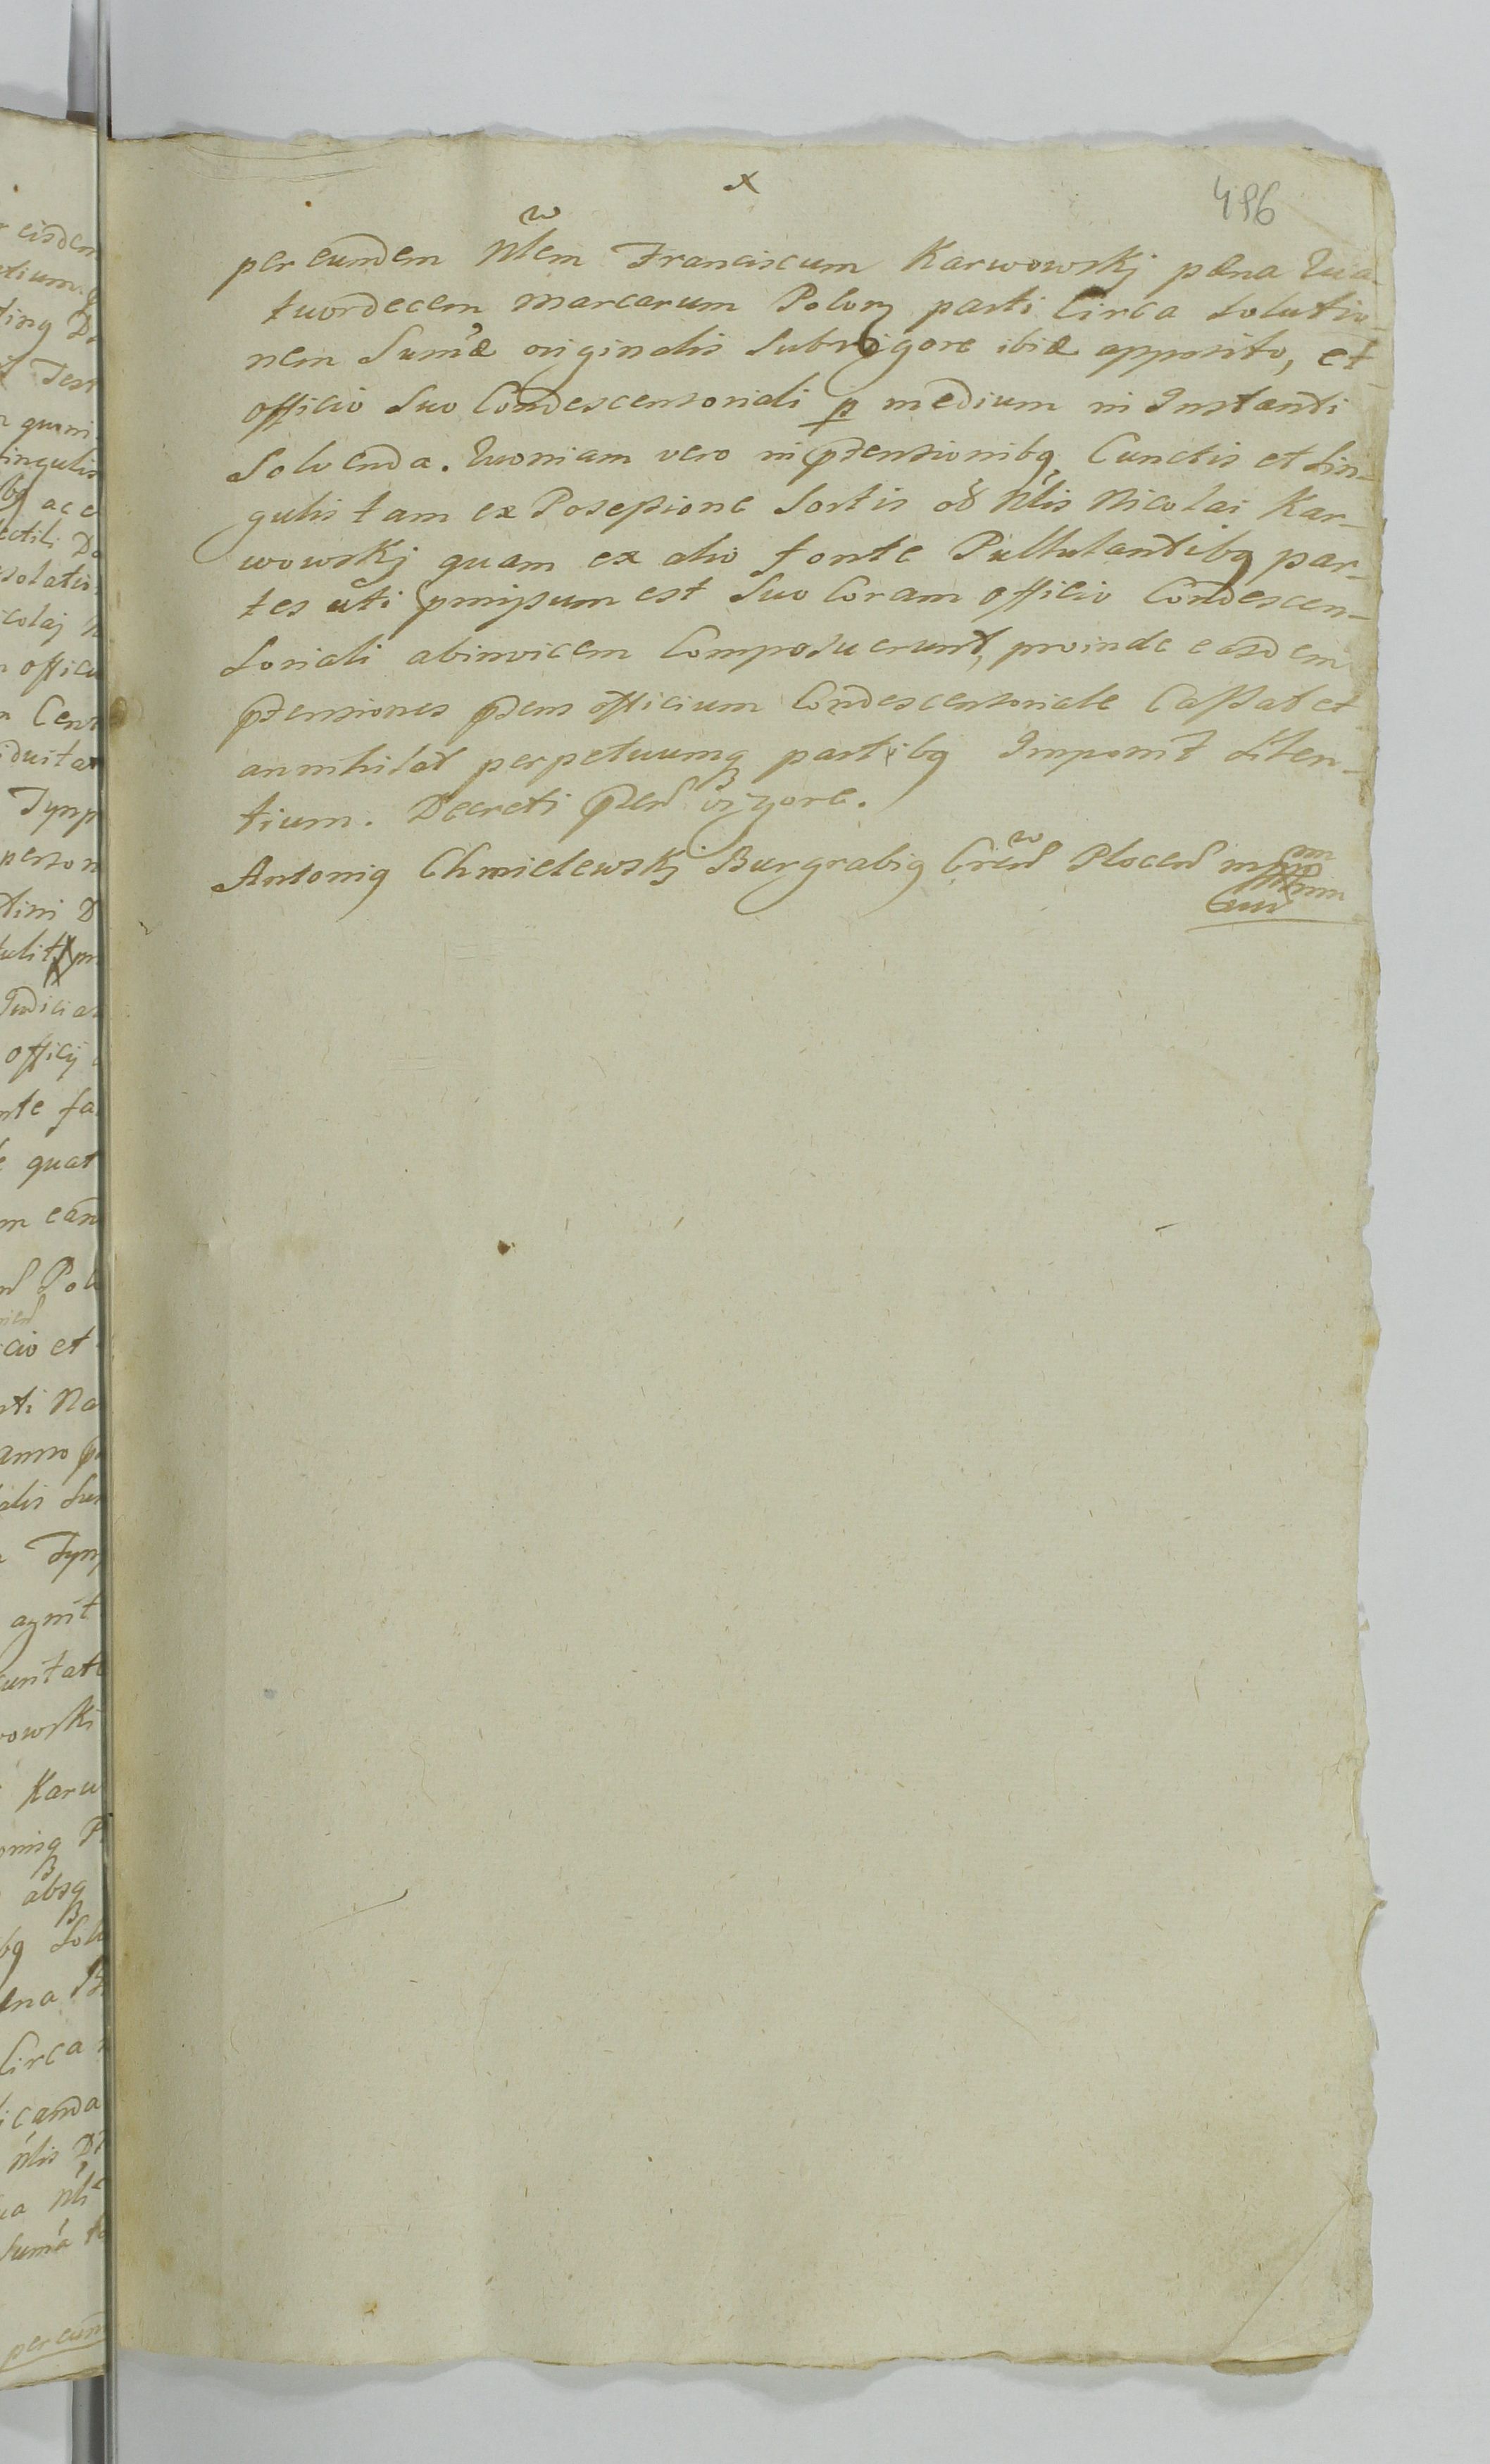 x
496
per eundem Nlem Franciscum Karwowskj pæna Qua-
tuordecem Marcarum Polon parti Circa Solutio-
nem Sumæ originalis Sub rigore ibiđ apposito, et
officio Suo Condescensoriali p medium in Instanti
Solvenda. Quoniam vero in prensionibq Cunctis et Sin-
gulis tam ex Posessione Sortis olim Nlis Nicolai Kar-
wowskj quam ex alio fonte Pullulantibq par-
tes uti pmissum est Suo Coram officio Condescen-
soriali abinvicem Composuerunt, proinde easdem
ptensiones pns officium Condescensoriale Cassat et
annihilat perpetuumq partibq Imponit Silen-
tium. Decreti pntis vigore.
Antoniq Chmielewskj Burgrabiq Plocen
eisdem
tium
Test
ingulis
ac e
ectili
solatio
colaj
offici
perso
tini D
Judicia
officij
nte fa
quat
m ean
Pol
cio et
sti Na
anno
alis Su
agnit
owski
Karw
absq
bq Sol
Circa
icanda
Nlis
Suma
per eun